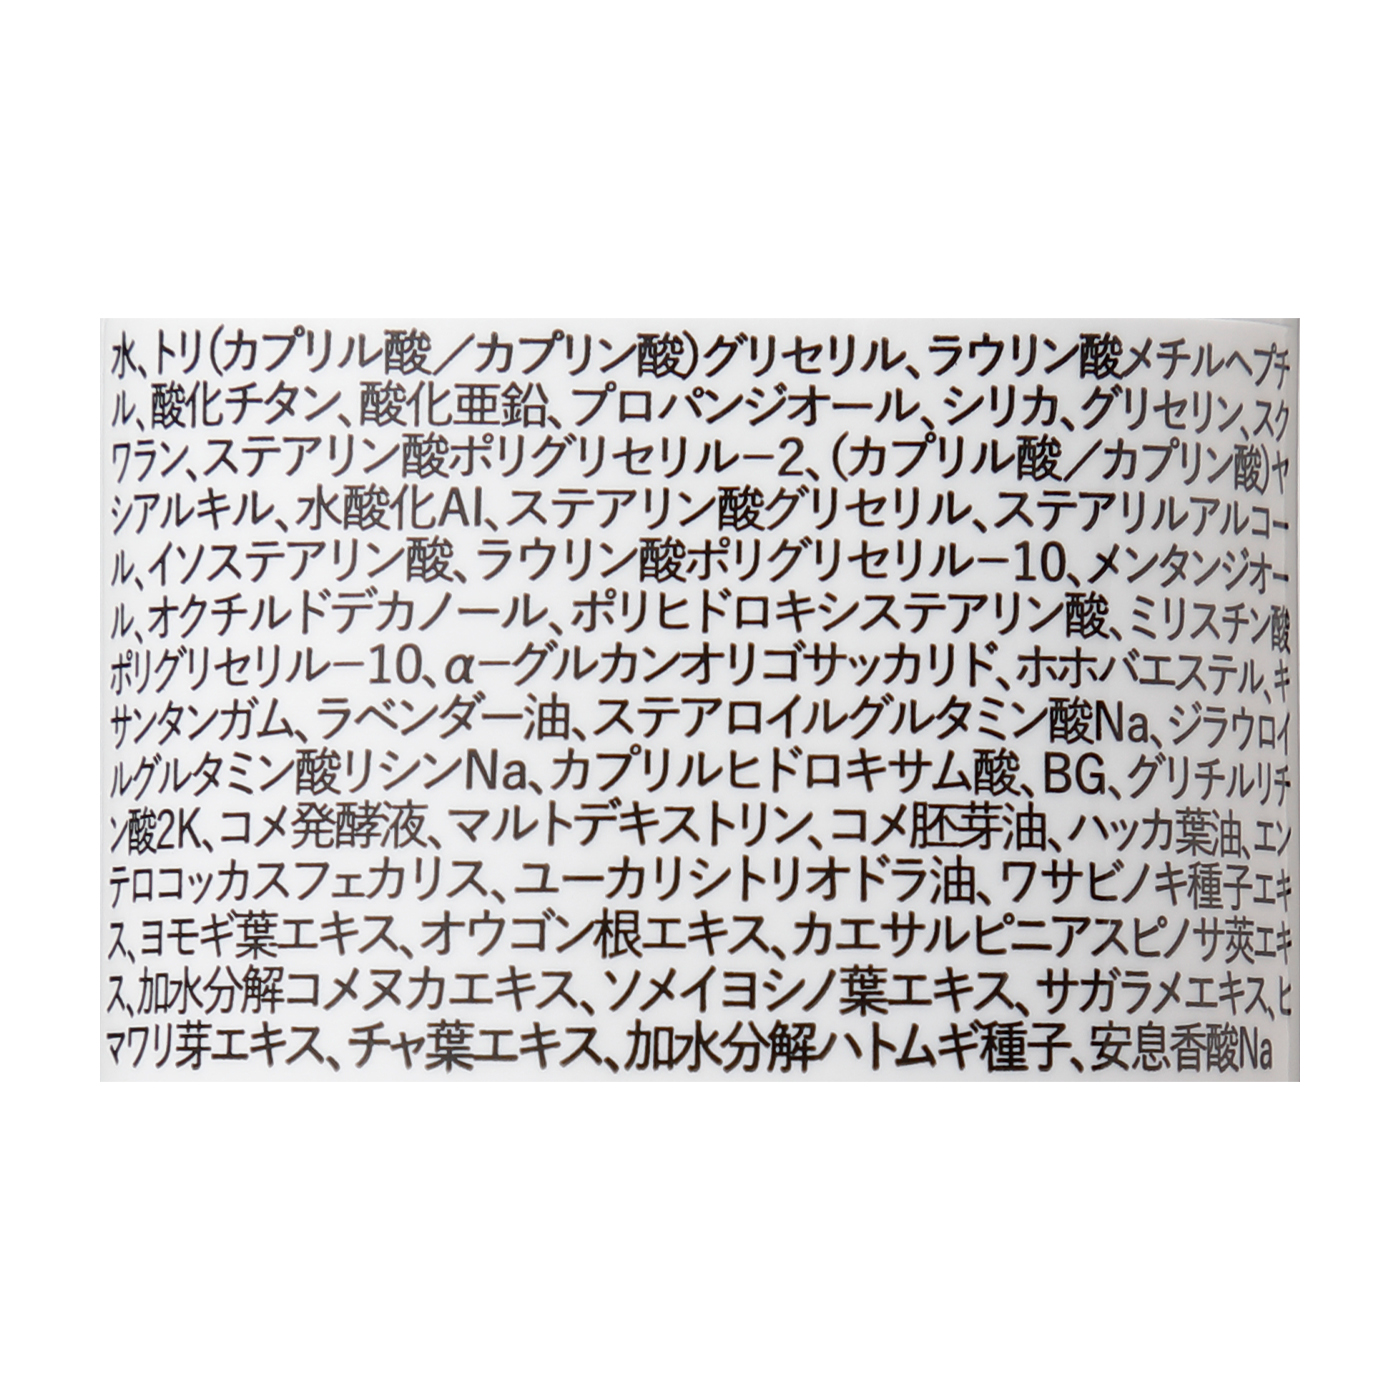 水、トリ(カプリル酸／カプリン酸)グリセリル、ラウリン酸メチルヘプチ
ル、酸化チタン、酸化亜鉛、プロパンジオール、シリカ、グリセリン、スク
ワラン、ステアリン酸ポリグリセリル−2、(カプリル酸／カプリン酸)ヤ
シアルキル、水酸化Al、ステアリン酸グリセリル、ステアリルアルコー
ル、イソステアリン酸、ラウリン酸ポリグリセリル−10、メンタンジオー
ル、オクチルドデカノール、ポリヒドロキシステアリン酸、ミリスチン酸
ポリグリセリル−10、α−グルカンオリゴサッカリド、ホホバエステル、キ
サンタンガム、ラベンダー油、ステアロイルグルタミン酸Na、ジラウロイ
ルグルタミン酸リシンNa、カプリルヒドロキサム酸、BG、グリチルリチ
ン酸2K、コメ発酵液、マルトデキストリン、コメ胚芽油、ハッカ葉油、エン
テロコッカスフェカリス、ユーカリシトリオドラ油、ワサビノキ種子エキ
ス、ヨモギ葉エキス、オウゴン根エキス、カエサルピニアスピノサ莢エキ
ス、加水分解コメヌカエキス、ソメイヨシノ葉エキス、サガラメエキス、ヒ
マワリ芽エキス、チャ葉エキス、加水分解ハトムギ種子、安息香酸Na